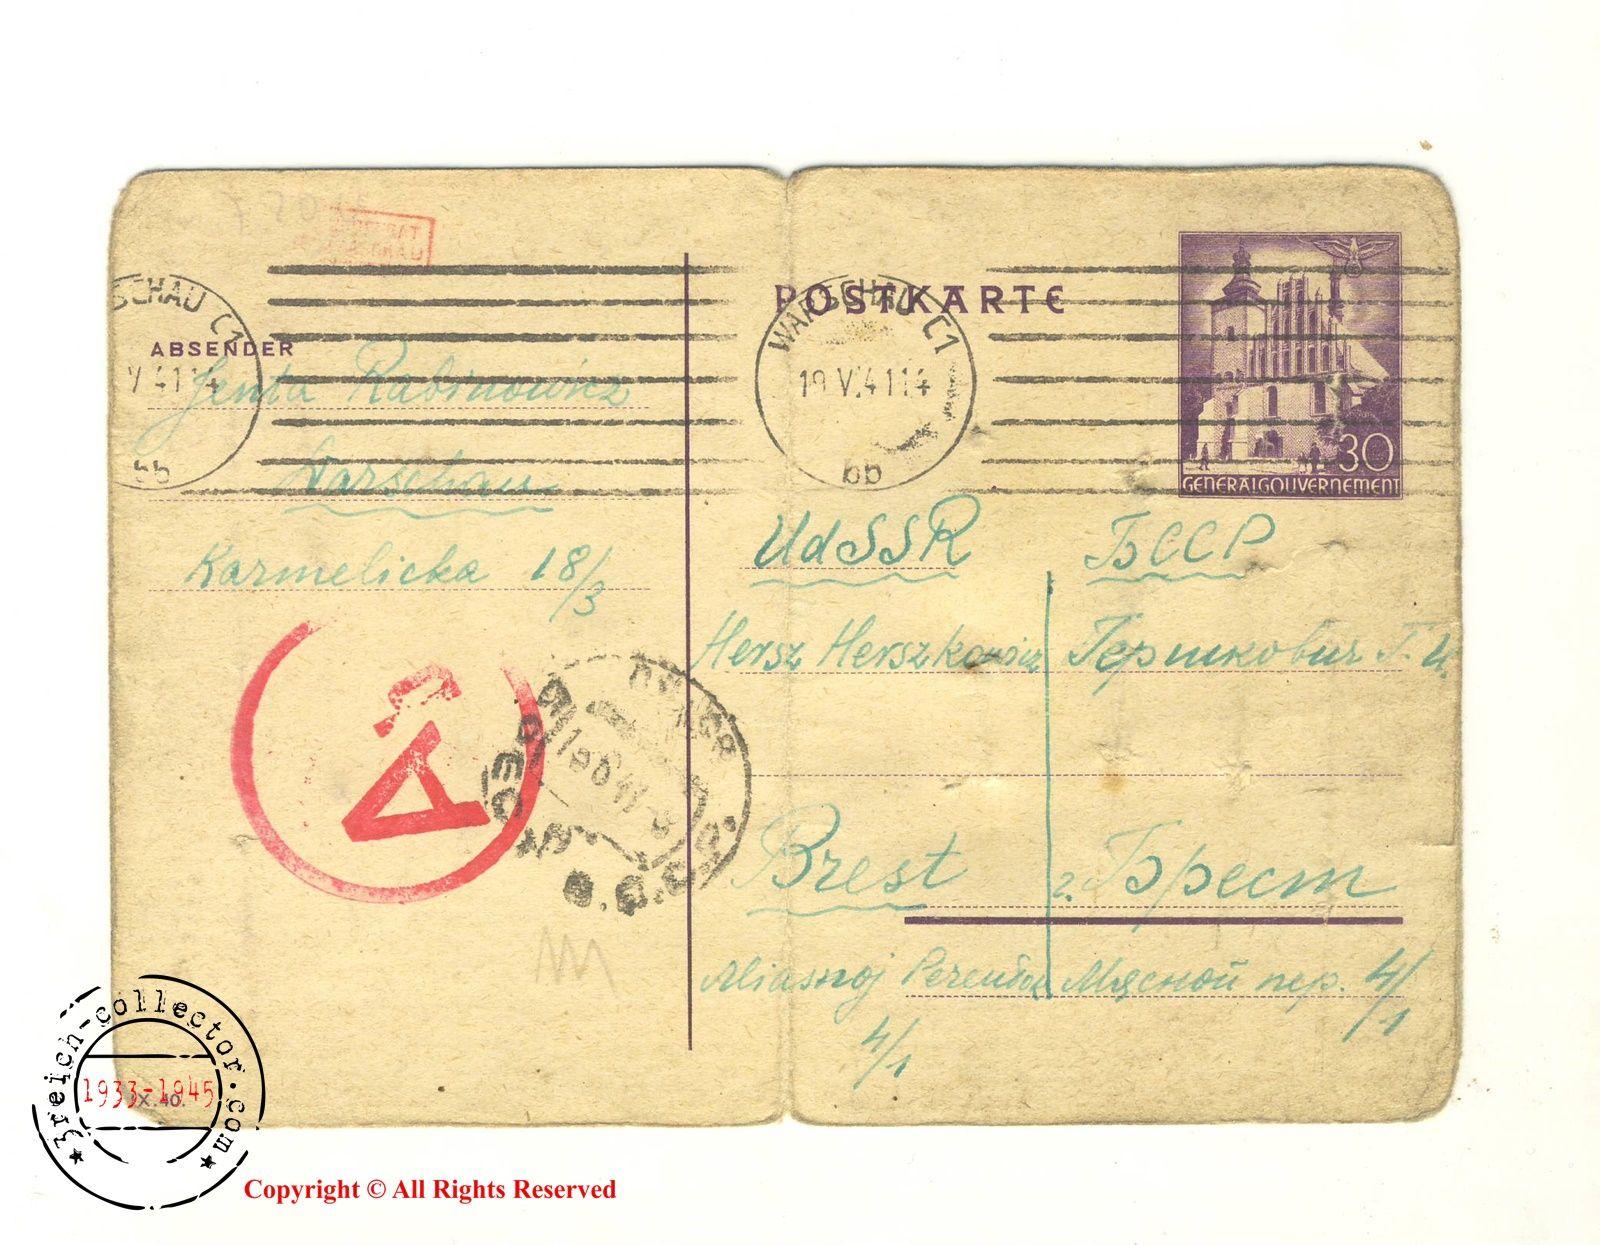 POSTKARTE
WARSCHAU C1
V.41 14
bb
SCHAU C1
V.41 14
bb
ABSENDER
Rabinowicz
Warschau
Karmelicka 18/3
30
GENERALGOUVERNEMENT
UdSSR
БССР
Hersz Herszkowicz
Гершкович Г. И.
Brest
г. Брест
Miasnoj
4/1
Мясной пер. 4/1
IX.40.
3reich-collector.com
1933-1945
Copyright © All Rights Reserved